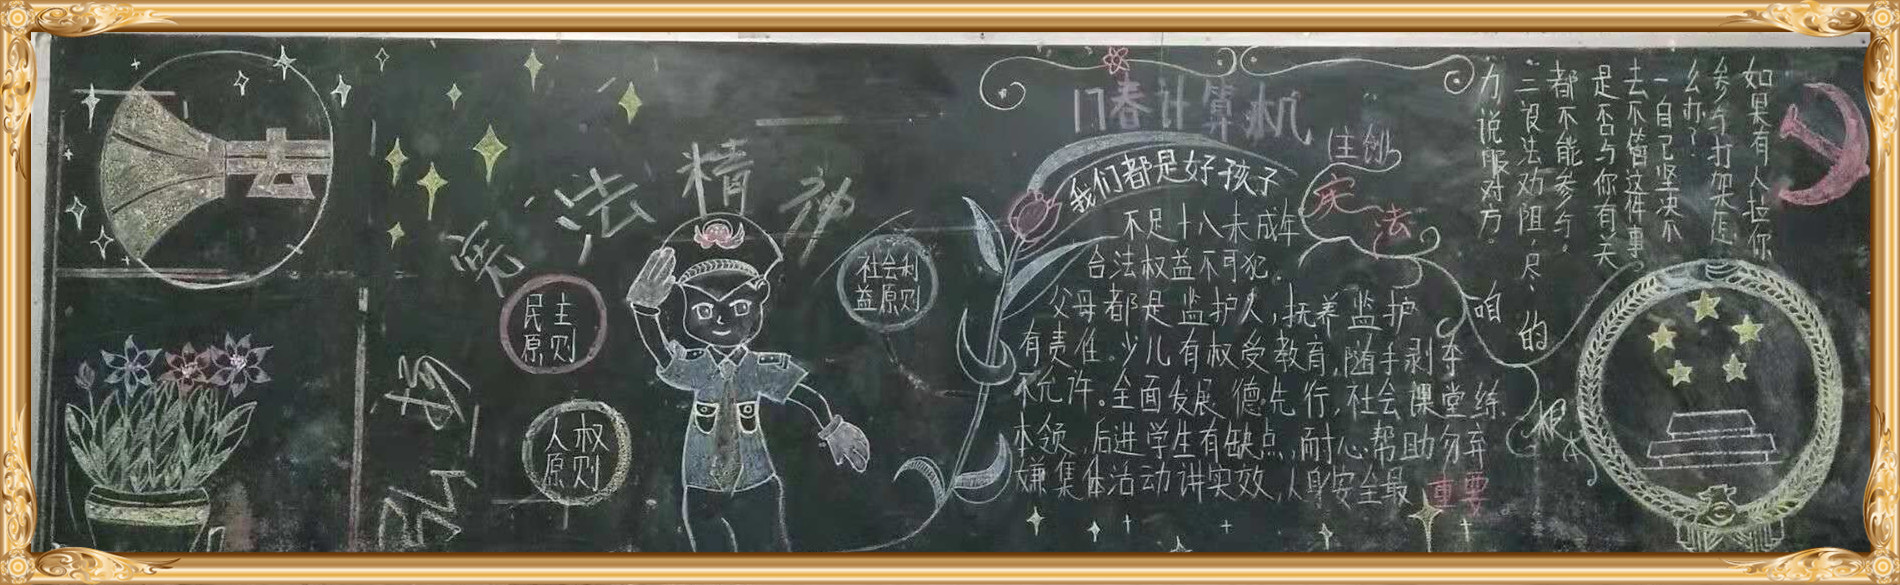 法
弘扬
宪法精神
民主
原则
人权
原则
社会利
益原则
17春计算机
主创
我们都是好孩子
不足十八未成年
合法权益不可犯.
父母都是监护人,抚养监护
有责任。少儿有权受教育,随手剥夺
不允许。全面发展德先行,社会课堂练
本领,后进学生有缺点,耐心帮助勿弃
嫌集体活动讲实效,人身安全最重要
宪法
咱的根本
如果有人拉你
参与打架怎
么办?
一自己坚决不
去不管这件事
是否与你有关
都不能参与。
二设法劝阻,尽
力说服对方。